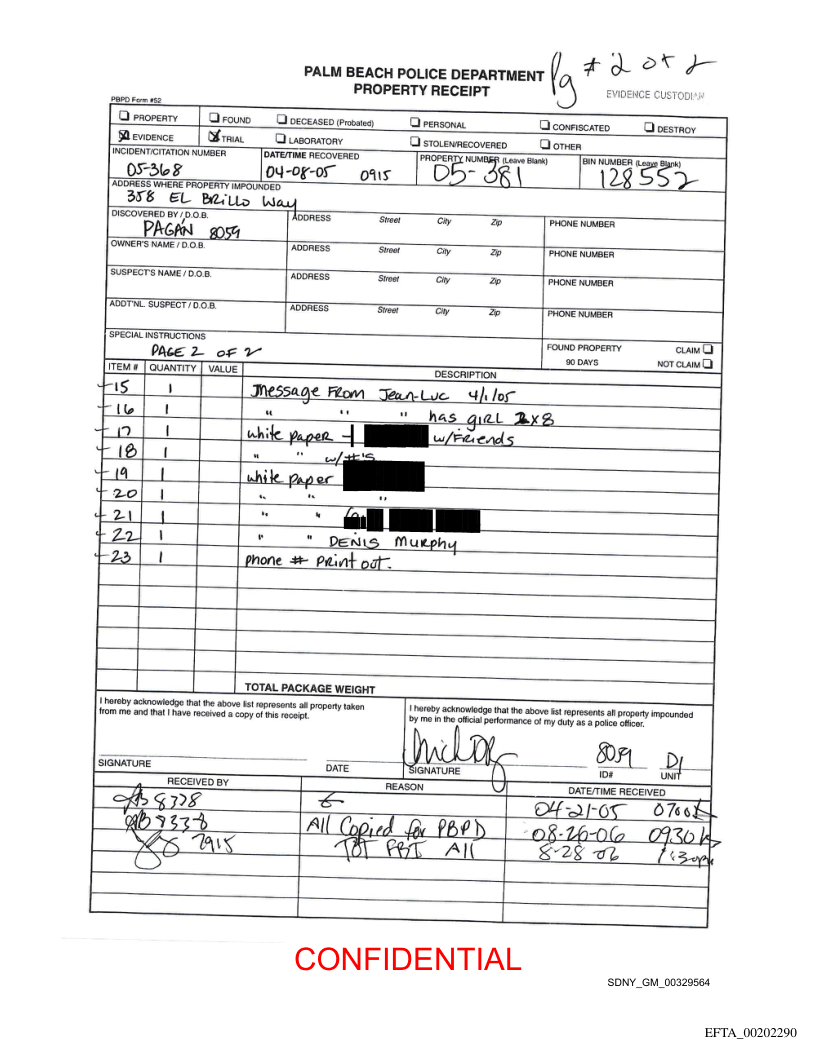 Pg # 2 of 2
PALM BEACH POLICE DEPARTMENT
PROPERTY RECEIPT
EVIDENCE CUSTODIAN
PBPD Form #52
PROPERTY FOUND DECEASED (Probated) PERSONAL CONFISCATED DESTROY
EVIDENCE TRIAL LABORATORY STOLEN/RECOVERED OTHER
INCIDENT/CITATION NUMBER DATE/TIME RECOVERED PROPERTY NUMBER (Leave Blank) BIN NUMBER (Leave Blank)
05-368 04-08-05 0915 05-381 128552
ADDRESS WHERE PROPERTY IMPOUNDED
358 EL Brillo Way
DISCOVERED BY / D.O.B. ADDRESS Street City Zip PHONE NUMBER
PAGAN 8059
OWNER'S NAME / D.O.B. ADDRESS Street City Zip PHONE NUMBER
SUSPECT'S NAME / D.O.B. ADDRESS Street City Zip PHONE NUMBER
ADDT'NL. SUSPECT / D.O.B. ADDRESS Street City Zip PHONE NUMBER
SPECIAL INSTRUCTIONS FOUND PROPERTY CLAIM
PAGE 2 OF 2 90 DAYS NOT CLAIM
ITEM # QUANTITY VALUE DESCRIPTION
15 1 Message From Jean-Luc 4/1/05
16 1 " " " has girl 2x8
17 1 white paper - w/Friends
18 1 " " w/#'s
19 1 white paper
20 1 " " "
21 1 " "
22 1 " " DENIS Murphy
23 1 phone # print out.
TOTAL PACKAGE WEIGHT
I hereby acknowledge that the above list represents all property taken
from me and that I have received a copy of this receipt.
I hereby acknowledge that the above list represents all property impounded
by me in the official performance of my duty as a police officer.
8059 D1
SIGNATURE DATE SIGNATURE ID# UNIT
RECEIVED BY REASON DATE/TIME RECEIVED
8378 04-21-05 0700
8338 All Copied for PBPD 08-26-06 0930
7915 TOT FBI All 8-28-06
CONFIDENTIAL
SDNY_GM_00329564
EFTA_00202290